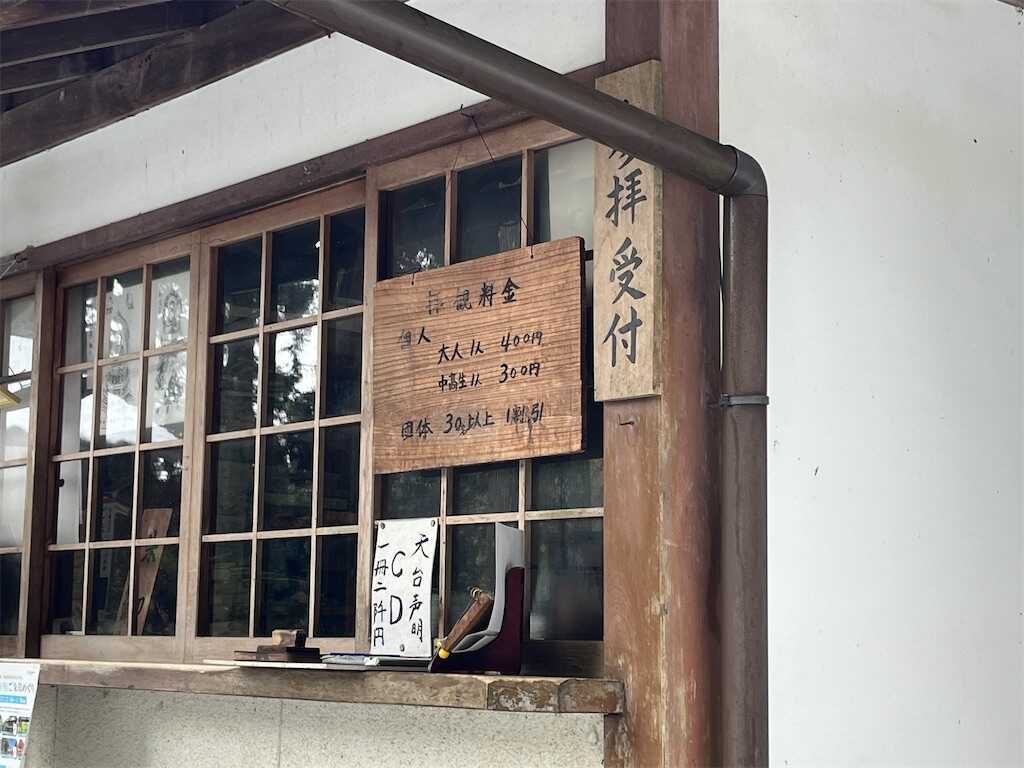 拝観料金
個人
大人1人 400円
中高生1人 300円
団体 30名以上 1割引
拝受付
天台声明
CD
一冊二阡円